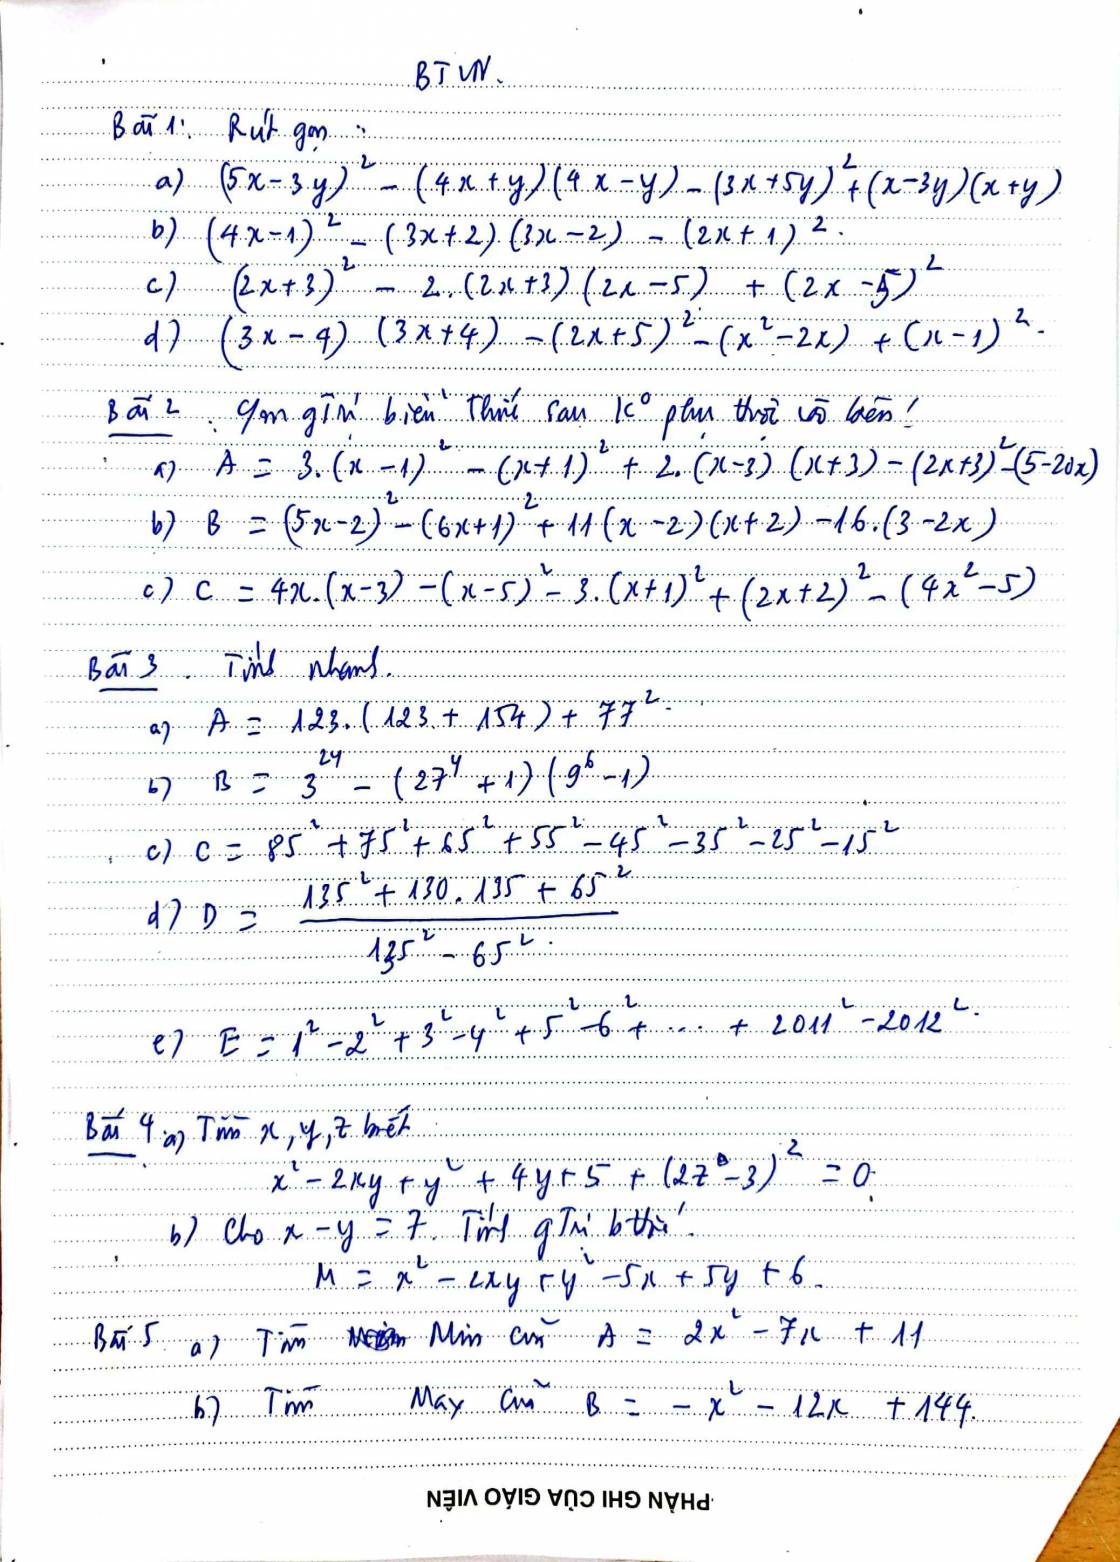 BTVN.
Bài 1: Rút gọn :
a) (5x-3y)² - (4x+y)(4x-y) - (3x+5y)² + (x-3y)(x+y)
b) (4x-1)² - (3x+2).(3x-2) - (2x+1)².
c) (2x+3)² - 2.(2x+3)(2x-5) + (2x-5)²
d) (3x-4) (3x+4) - (2x+5)² - (x²-2x) + (x-1)².
Bài 2 . gtrị biểu thức sau k° phụ thuộc vào biến!
a) A = 3.(x-1)² - (x+1)² + 2.(x-3)(x+3) - (2x+3)² - (5-20x)
b) B = (5x-2)² - (6x+1)² + 11(x-2)(x+2) - 16.(3-2x)
c) C = 4x.(x-3) - (x-5)² - 3.(x+1)² + (2x+2)² - (4x²-5)
Bài 3 . Tính nhanh.
a) A = 123.(123+154) + 77².
b) B = 3²⁴ - (27⁴+1)(9⁶-1)
c) C = 85² + 75² + 65² + 55² - 45² - 35² - 25² - 15²
d) D = 135² + 130.135 + 65²
135² - 65².
e) E = 1² - 2² + 3² - 4² + 5² - 6² + ... + 2011² - 2012².
Bài 4 a) Tìm x, y, z biết
x² - 2xy + y² + 4y + 5 + (2z-3)² = 0
b) Cho x - y = 7. Tính gtrị bthức.
M = x² - 2xy + y² - 5x + 5y + 6.
Bài 5 a) Tìm Min của A = 2x² - 7x + 11
b) Tìm Max của B = -x² - 12x + 144.
PHẦN GHI CỦA GIÁO VIÊN